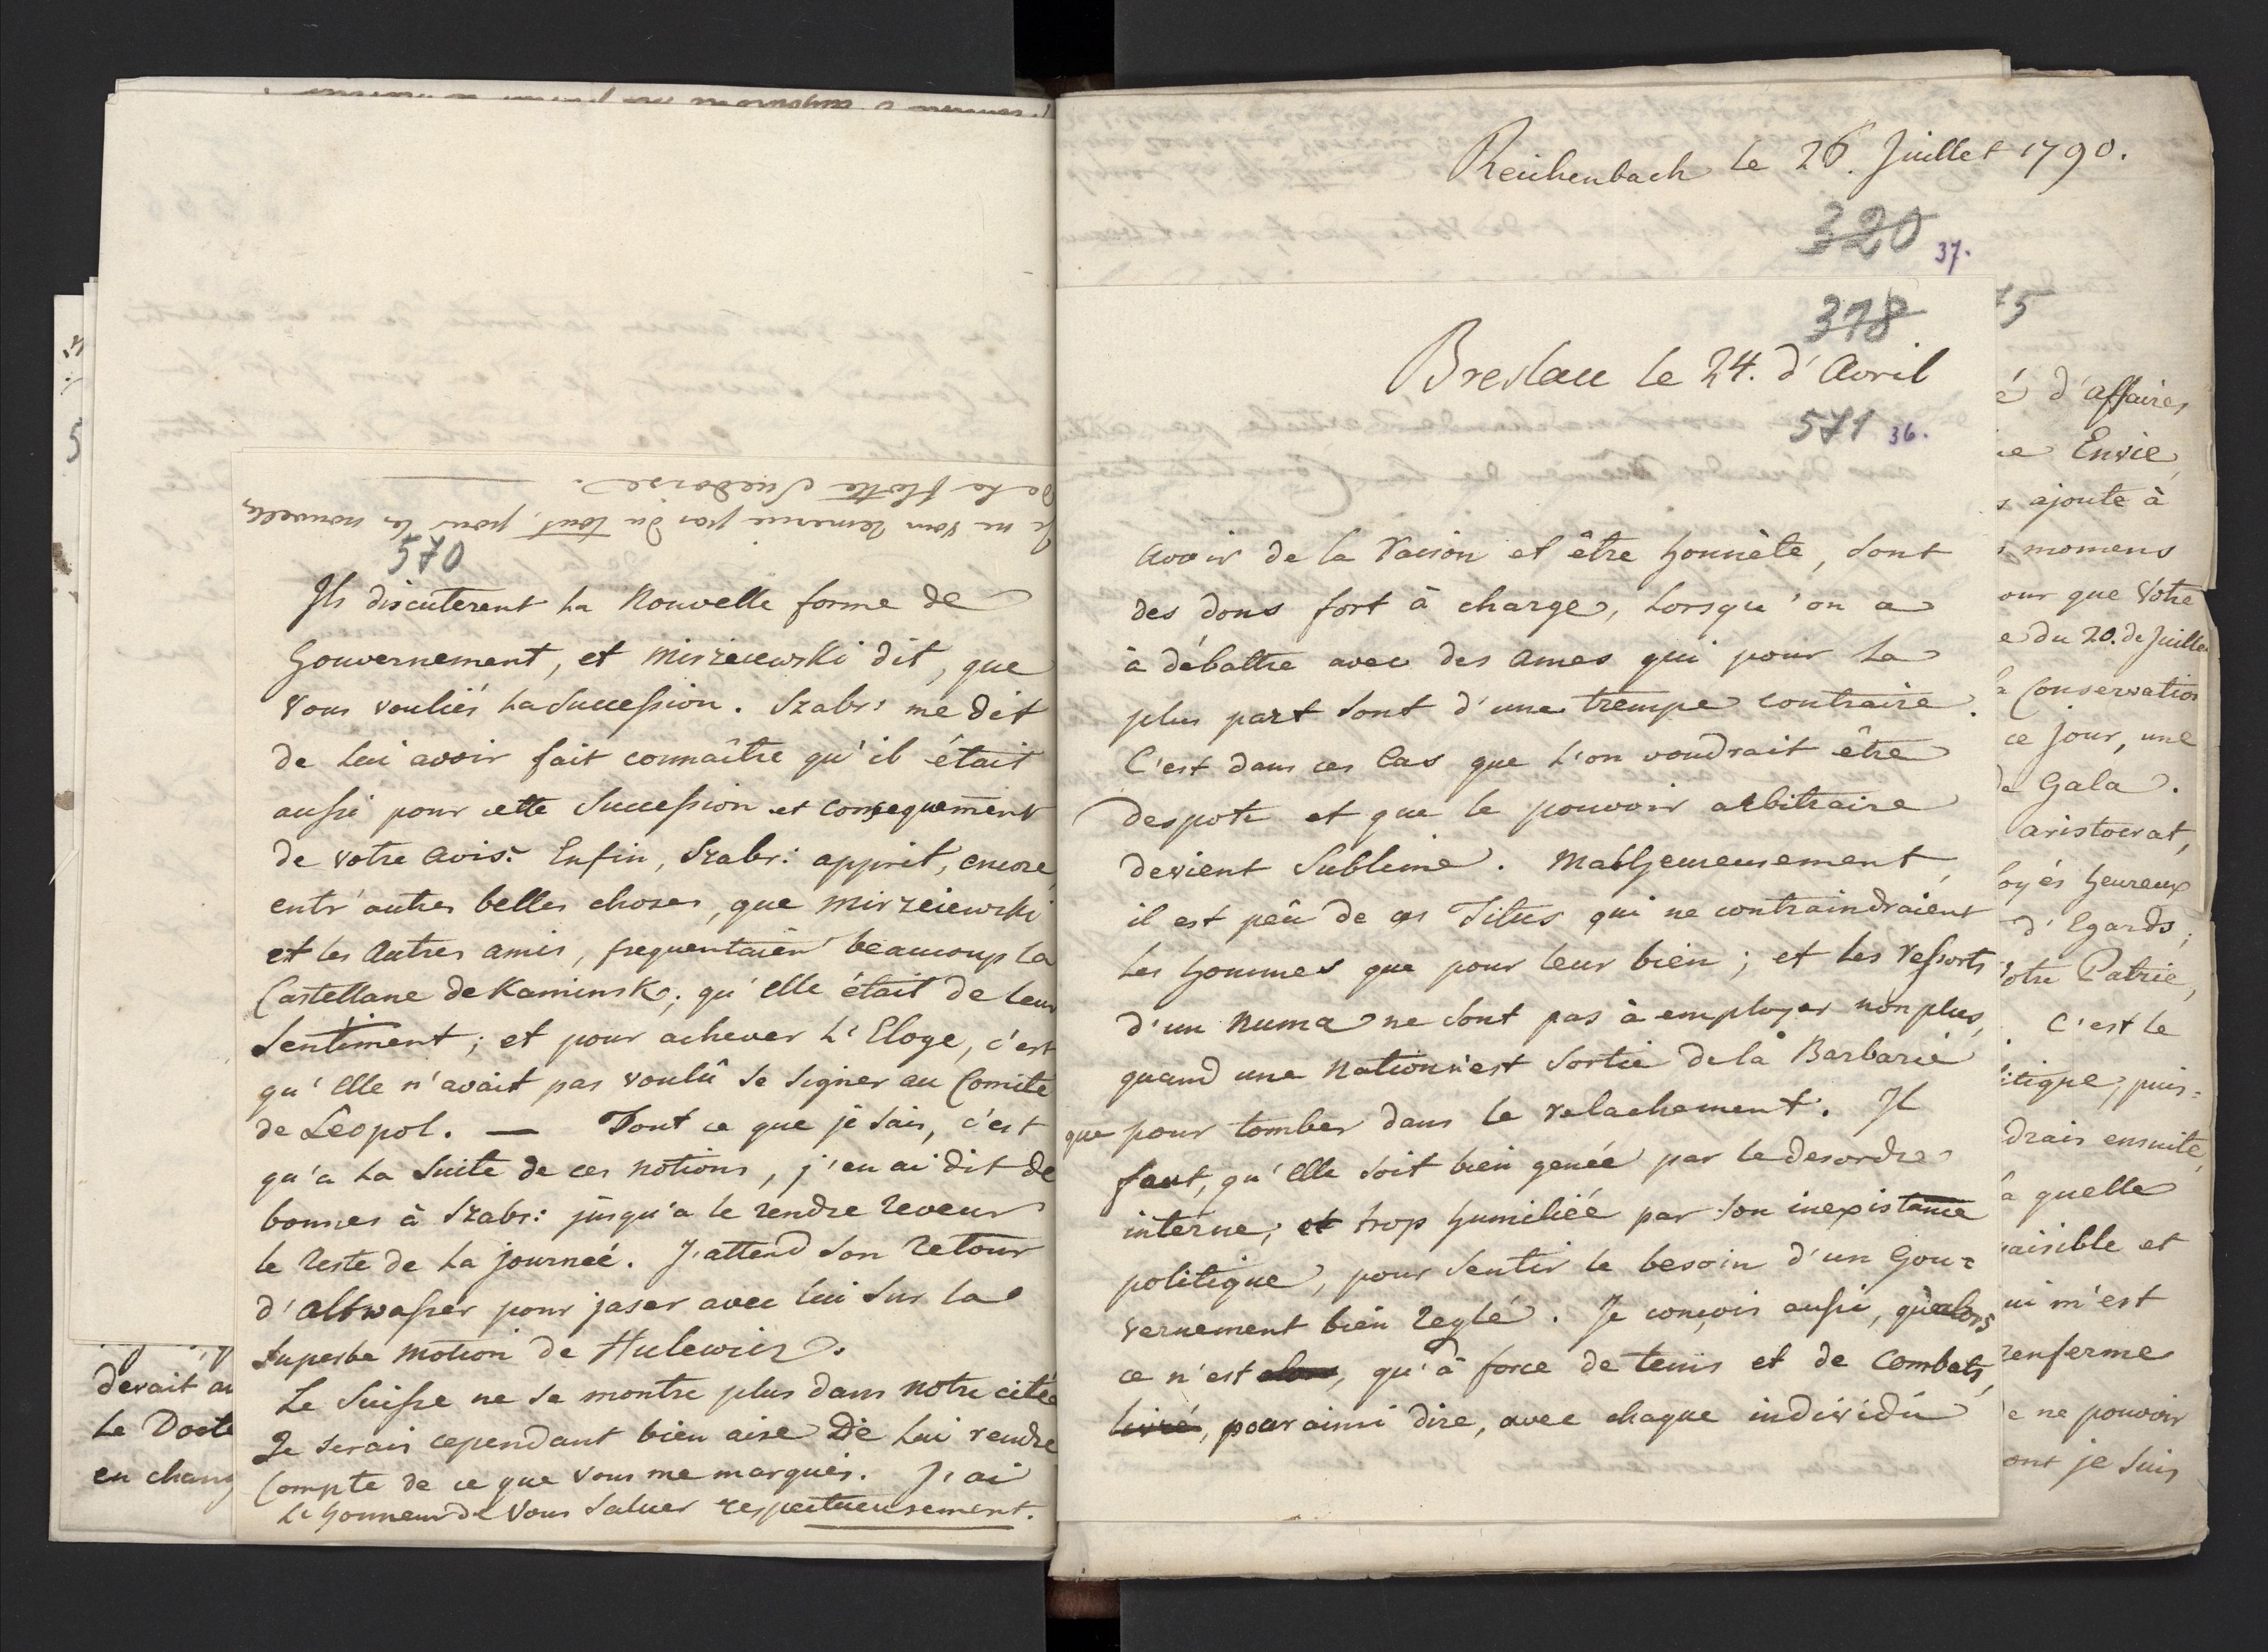 Je ne vous remercie pas du tout, pour la nouvelle
de la flotte Suedoise.
570
Ils discuterent la Nouvelle forme de
Gouvernement, et Mirzeiewski dit, que
Vous vouliés la Succession. Szabr: me dit
de lui avoir fait connaître qu'il était
aussi pour cette Succession et consequement
de votre avis. Enfin, Szabr: apprit, encore,
entr'autres belles choses, que Mirzeiewski
et les Autres amis, frequentaien beaucoup la
Castellane de Kaminsk; qu'elle était de leur
Sentiment; et pour achever l'Eloge, c'est
qu'elle n'avait pas voulû se signer au Comité
de Léopol. — Tout ce que je sais, c'est
qu'a la Suite de ces notions, j'en ai dit de
bonnes à Szabr: jusqu'a le rendre reveur
le reste de la journeé. J'attend son retour
d'Altwasser pour jaser avec lui sur la
Superbe motion de Hulewicz.
Le Suisse ne se montre plus dans notre citée
Je serais cependant bien aise de lui rendre
Compte de ce que vous me marqués. J'ai
l'honneur de Vous saluer respectueusement.
devait au
le Docte
en chang
5
Reichenbach le 26. Juillet 1790.
320
37.
378
Breslau le 24. d'Avril
571 36.
Avoir de la raison et être honnête, sont
des dons fort à charge, lorsqu'on a
à débattre avec des ames qui pour la
plus part sont d'une trempe contraire.
C'est dans ces Cas que l'on voudrait être
despote et que le pouvoir arbitraire
devient Sublime. Malheureusement,
il est peû de ces Titus qui ne contraindraient
les hommes que pour leur bien; et les ressorts
d'un Numa ne sont pas à employer nonplus,
quand une Nation n'est sortie de la Barbarie
que pour tomber dans le relachement. Il
faut, qu'elle soit bien genée par le desordre
interne, et trop humiliéé par son inexistance
politique, pour sentir le besoin d'un Gou=
vernement bien reglé. Je conçois aussi, qu'alors
ce n'est alors, qu'à force de tems et de Combats,
livré, pour ainsi dire, avec chaque individû
75
é d'affaires
ie Envie
s ajoute à
s momens
our que Votre
e du 20. de Juillet
a Conservation
ce jour, une
de Gala.
aristocrat,
oyés heureux
d'Egards;
Votre Patrie,
C'est le
litique, puis=
drais ensuite,
a quelle
paisible et
ui m'est
renferme
e ne pouvoir
ont je suis